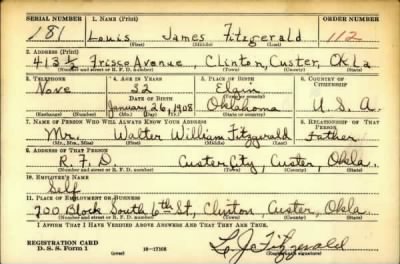 SERIAL NUMBER 1. NAME (Print) ORDER NUMBER
181 Louis James Fitzgerald 112
(First) (Middle) (Last)
2. ADDRESS (Print)
413½ Frisco Avenue, Clinton, Custer, Okla
(Number and street or R. F. D. number) (Town) (County) (State)
3. TELEPHONE 4. AGE IN YEARS 5. PLACE OF BIRTH 6. COUNTRY OF CITIZENSHIP
None 32 Elgin
DATE OF BIRTH
January 26, 1908 Oklahoma U.S.A.
(Exchange) (Number) (Mo.) (Day) (Yr.) (State or country)
7. NAME OF PERSON WHO WILL ALWAYS KNOW YOUR ADDRESS 8. RELATIONSHIP OF THAT PERSON
Mr. Walter William Fitzgerald Father
(Mr., Mrs., Miss) (First) (Middle) (Last)
9. ADDRESS OF THAT PERSON
R.F.D. Custer City Custer, Okla.
(Number and street or R. F. D. number) (Town) (County) (State)
10. EMPLOYER'S NAME
Self
11. PLACE OF EMPLOYMENT OR BUSINESS
700 Block South 6th St, Clinton, Custer, Okla.
(Number and street or R. F. D. number) (Town) (County) (State)
I AFFIRM THAT I HAVE VERIFIED ABOVE ANSWERS AND THAT THEY ARE TRUE.
REGISTRATION CARD
D. S. S. Form 1 (over) 16—17105 L. J. Fitzgerald